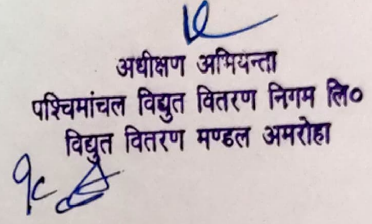 अधीक्षण अभियन्ता
पश्चिमांचल विद्युत वितरण निगम लि०
विद्युत वितरण मण्डल अमरोहा